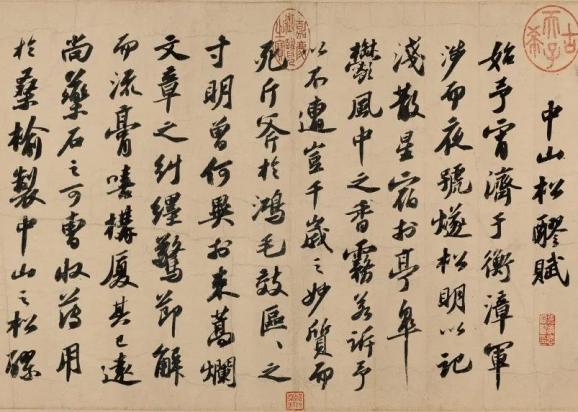 古希天子
中山松醪賦
始予宵濟于衡漳軍
涉而夜號燧松明以記
淺散星宿於亭皐
鬱風中之香霧若訴予
以不遭豈千歲之妙質而
死斤斧於鴻毛效區々之
寸明曾何異於束蒿爛
文章之糾纏驚節解
而流膏嘻構厦其已遠
尚藥石之可曹收薄用
於桑榆製中山之松醪
嘉慶御覽之寶